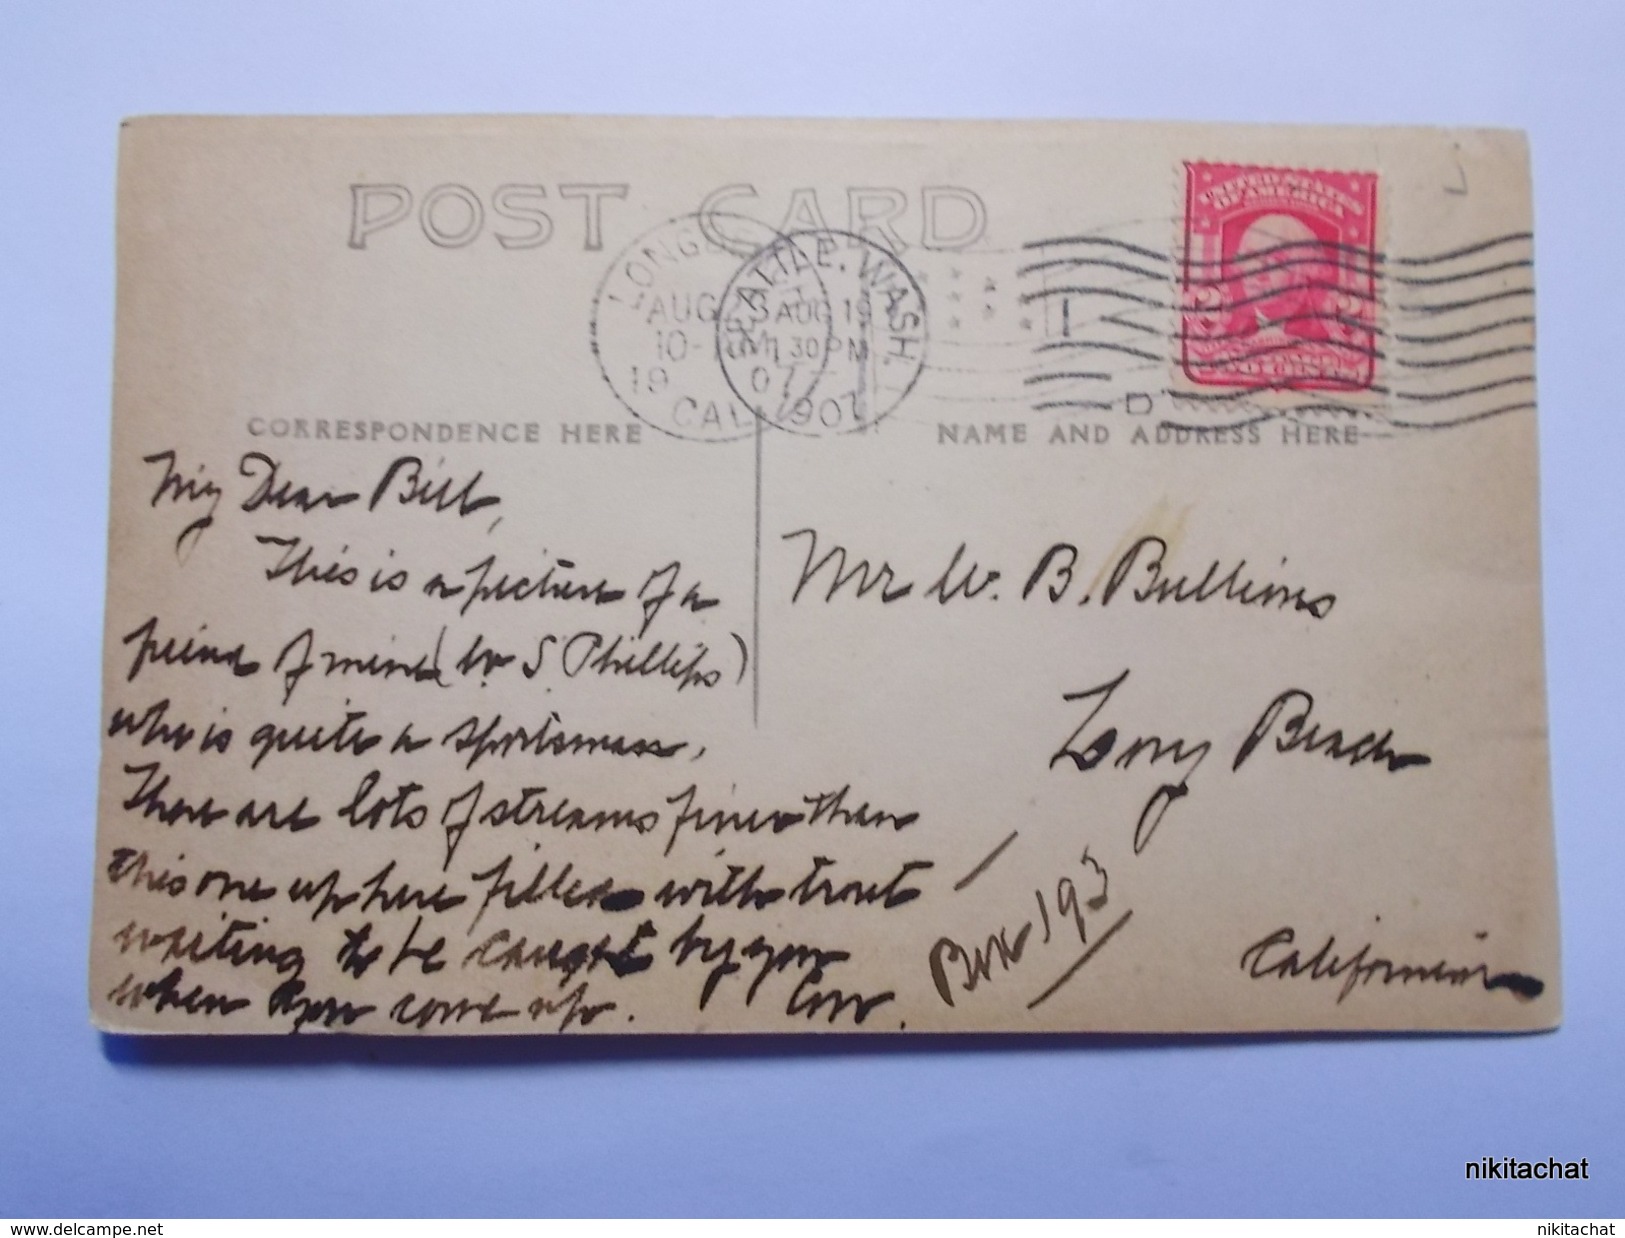 POST CARD
LONG
AUG 23
10-
19 07
CAL
SEATTLE, WASH.
AUG 19
1 30 PM
1907
D
UNITED STATES
OF AMERICA
2 2
CORRESPONDENCE HERE
NAME AND ADDRESS HERE
My Dear Bill,
This is a picture of a
friend of mine (W S Phillips)
who is quite a sportsman.
There are lots of streams finer than
this one up here filled with trout
waiting to be caught by you
when you come up.
Mr W. B. Bullions
Long Beach
Box 193
California
nikitachat
www.delcampe.net
nikitachat